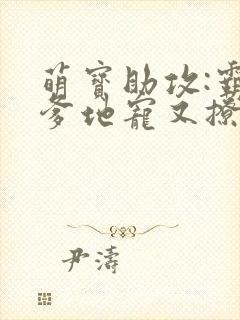 萌寶助攻:霸
爹地寵又撩
尹濤